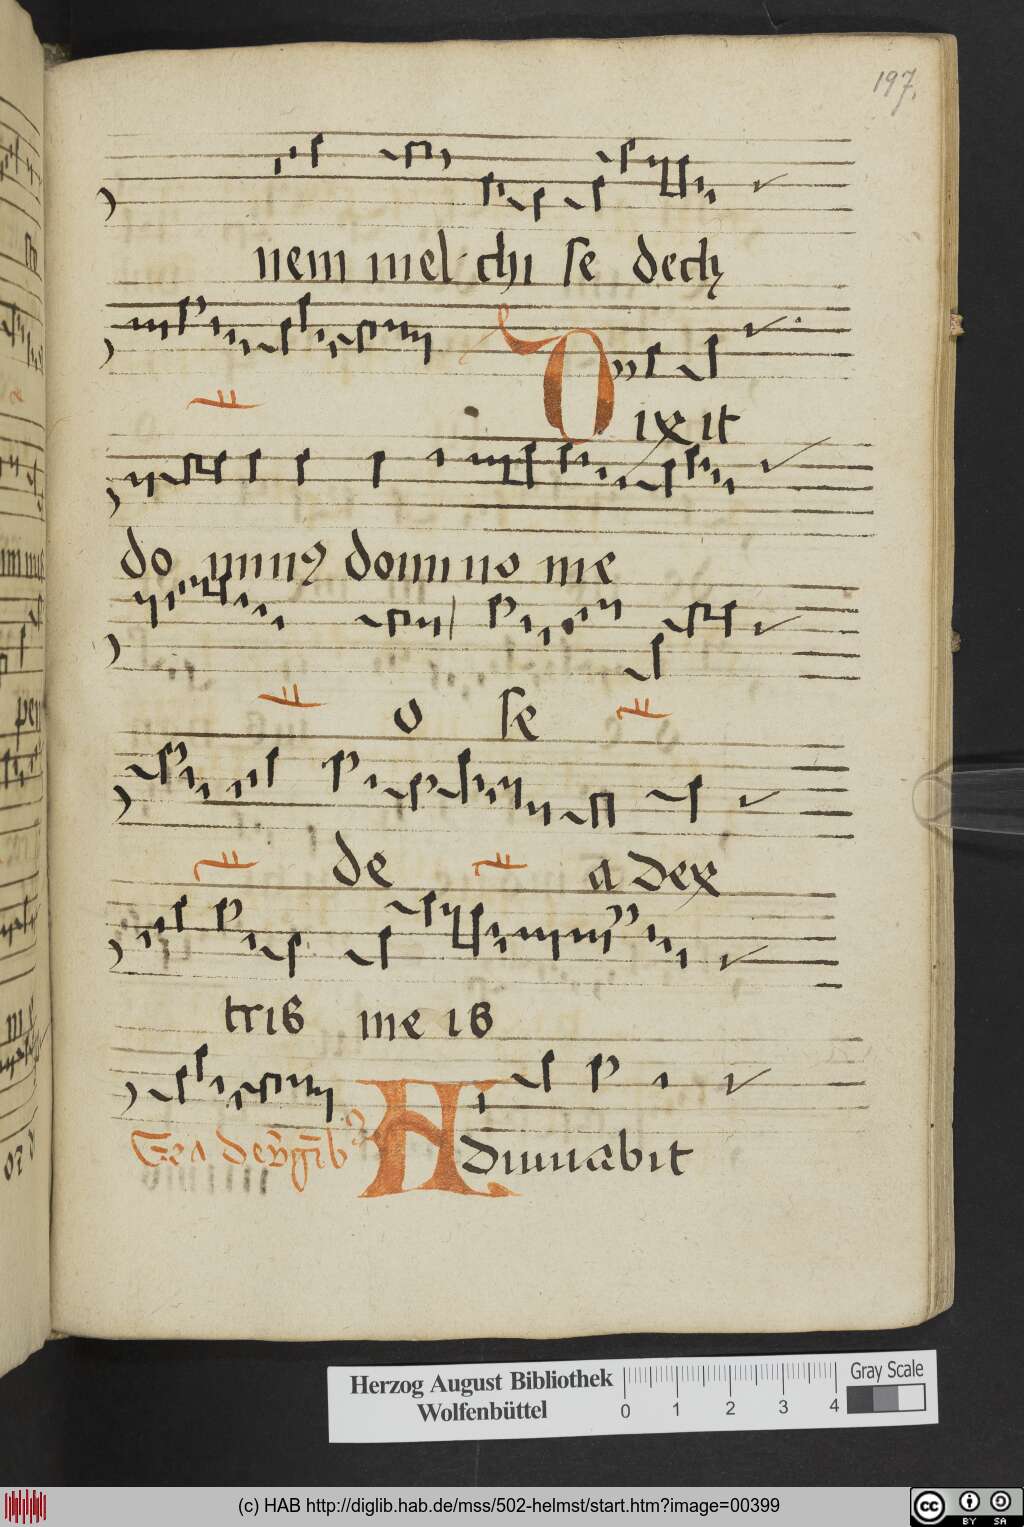 197.
nem mel chi se dech
Dixit
do minus domino me
o se
de a dex
tris me is
de virginib
Adiuuabit
Herzog August Bibliothek
Wolfenbüttel
0 1 2 3 4
Gray Scale
(c) HAB http://diglib.hab.de/mss/502-helmst/start.htm?image=00399
cc BY SA